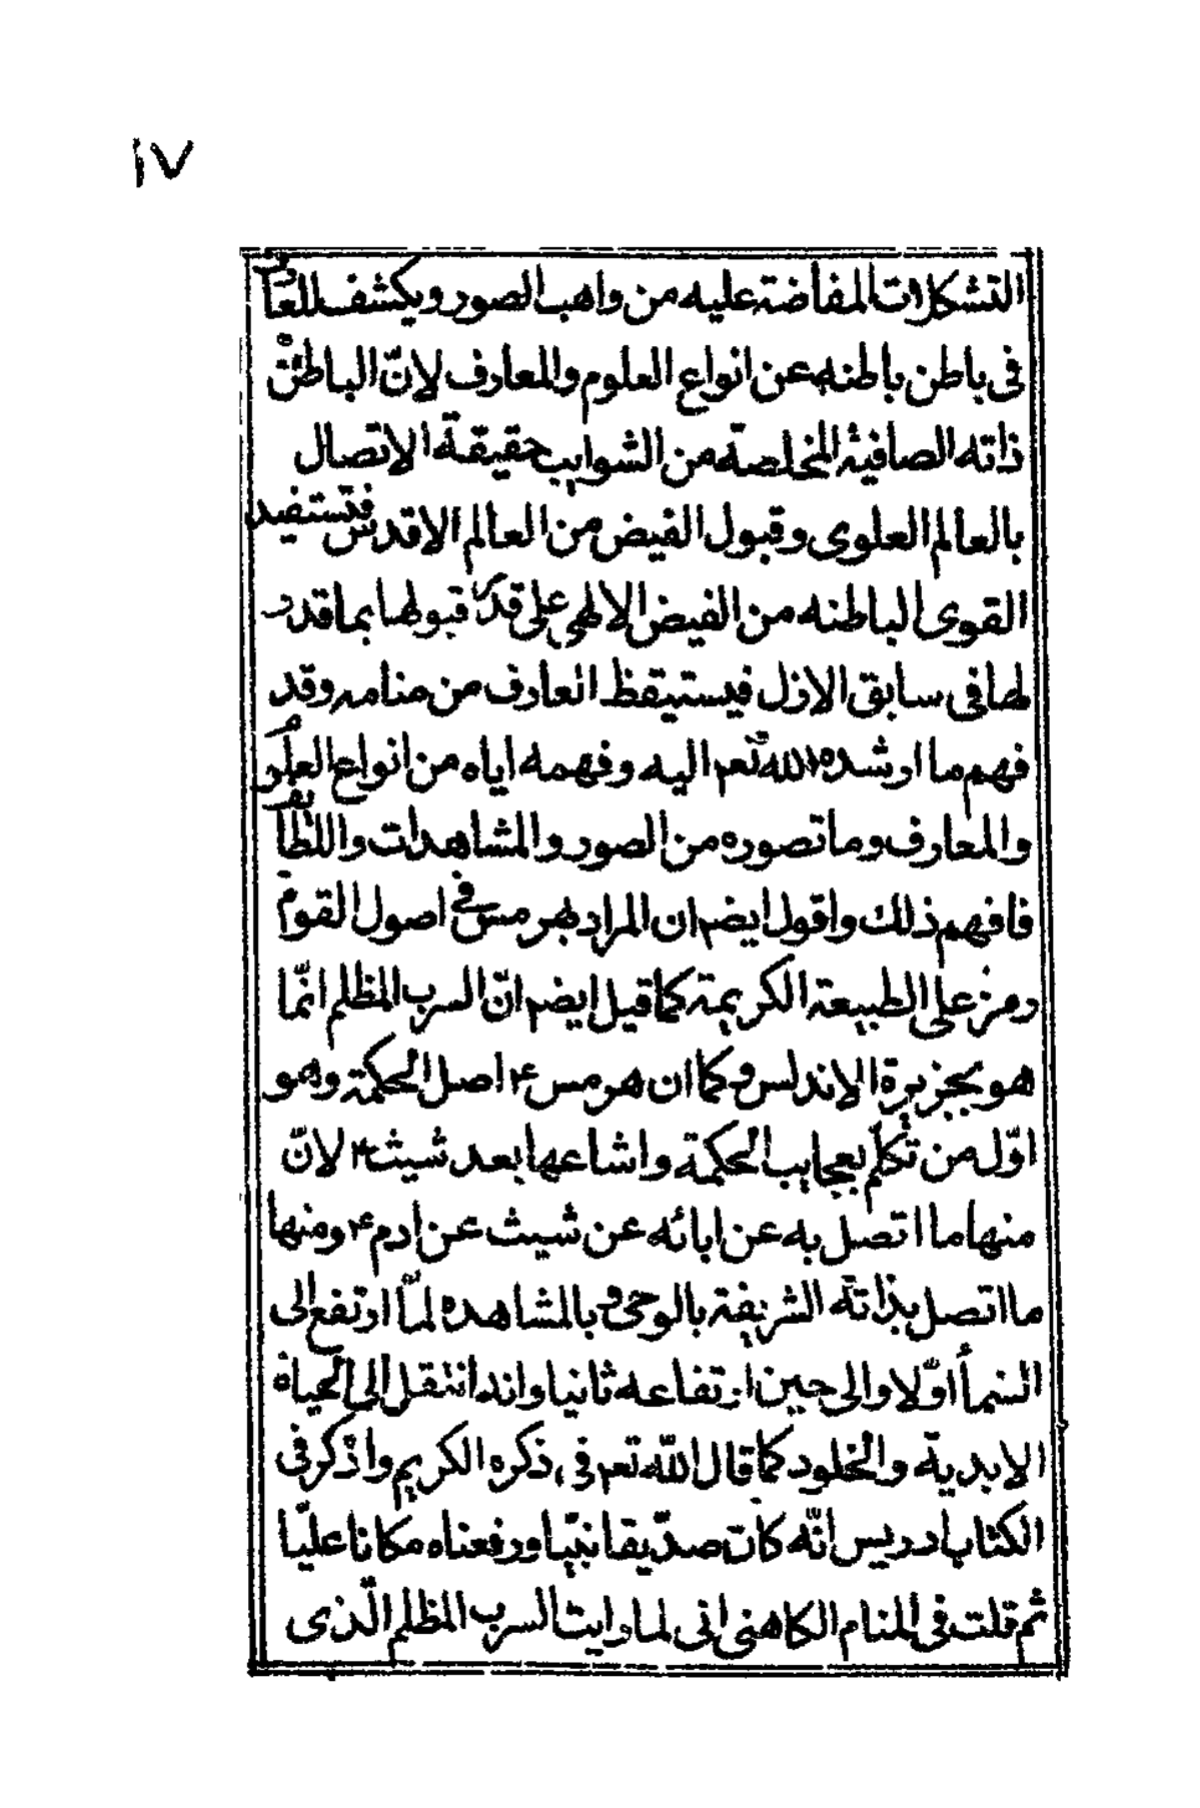 ١٧
التشكلات المفاضة عليه من واهب الصور ويكشف للعارف
فى باطن باطنه عن انواع العلوم والمعارف لانّ الباطن فى
ذاته الصافية المخلصة من الشوايب حقيقة الاتصال
بالعالم العلوى وقبول الفيض من العالم الاقدس فتستفيد
القوى الباطنه من الفيض الالهى على قدر قبولها بما قدر
لها فى سابق الازل فيستيقظ العارف من منامه وقد
فهم ما ارشده الله تعم اليه وفهمه اياه من انواع العلوم
والمعارف وما تصوره من الصور والمشاهدات واللطايف
فافهم ذلك واقول ايضم ان المراد بهرمس فى اصول القوم
رمز على الطبيعة الكريمة كما قيل ايضم انّ السرب المظلم انّما
هو بجزيرة الاندلس وكما ان هرمس ع اصل الحكمة وهو
اوّل من تكلّم بعجايب الحكمة واشاعها بعد شيث ع لانّ
منها ما اتصل به عن ابائه عن شيث عن ادم ع ومنها
ما اتصل بذاته الشريفة بالوحى وبالمشاهده لمّا ارتفع الى
السمأ اوّلا والى حين ارتفاعه ثانيا وانه انتقل الى الحياة
الابدية والخلود كما قال الله تعم فى ذكره الكريم واذكر فى
الكتاب ادريس انّه كان صدّيقا نبيّا ورفعناه مكانا عليّا
ثم قلت فى المنام الكاهنى انى لما رايت السرب المظلم الّذى